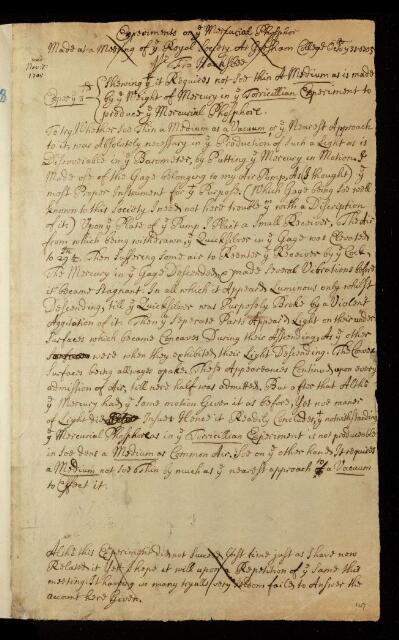 Experiments on yͤ Mercurial Phosphor
Made at a Meeting of yͤ Royal Society. At Gresham College Octoᵇ 31 1705
Pʳ Fra Hauksbee
Nov: 7:
1705
8
Experᵗ 1ˢᵗ Shewing yᵗ it Requires not Soe thin A Medium as is made
by yͤ Weight of Mercury in yͤ Torricillian Experiment to
produce yͤ Mercurial Phosphore.
To try Whether Soe Thin a Medium as a Vacuum or yͤ Nearest Approach
to it, was Absolutely necessary in yͤ Production of Such a Light as is
Discoverable in yͤ Barometer, by Putting yͤ Mercury in Motion; I
Made use of the Gage belonging to my Air Pump, As (I thought) yͤ
most Proper Instrument for yͤ Purpose. (Which Gage being Soe well
known to this Society, I need not here trouble yᵐ with a Discription
of it) Upon yͤ Plate of yͤ Pump I Plac't a Small Receiver, The Air
from which being withdrawn, yͤ Quicksilver in yͤ Gage was Elevated
to 29 ½. Then Suffering Some air to Reenter yͤ Receiver by yͤ Cock,
The Mercury in yͤ Gage Descended, & made Several Vibrations before
it became Stagnant. In all which it Appeard Luminous only whilst
Descending, till yͤ Quicksilver was Purposely Broke by a Violent
Aggitation of it. Then yͤ Seperate Parts Appeard Light on their under
Surfaces which became Concaves During their Assending, As yͤ other
were when they exhibited their Light Descending. The Convex
Surfaces being allwayes opake. These Appearances Continud upon every
admission of Air, till neer half was admitted, But after that Altho
yͤ Mercury had yͤ Same motion Given it as before, Yet noe maner
of Light did Insue. Hence it Readily Concludes, yᵗ notwithstanding
yͤ Mercurial Phosphore as in yͤ Torricillian Experiment is not produceable
in Soe dens a Medium as Common Air, Soe on yͤ other hand, it requires
a Medium not Soe Thin by much as yͤ nearest approach to a Vacuum
to Effect it.
Altho this Experiment did not Succeed last time just as I have now
Related it Yet I hope it will upon a Repetition of yͤ Same this
meeting, It having in many tryalls very Seldom failed to Answer the
account here Given.